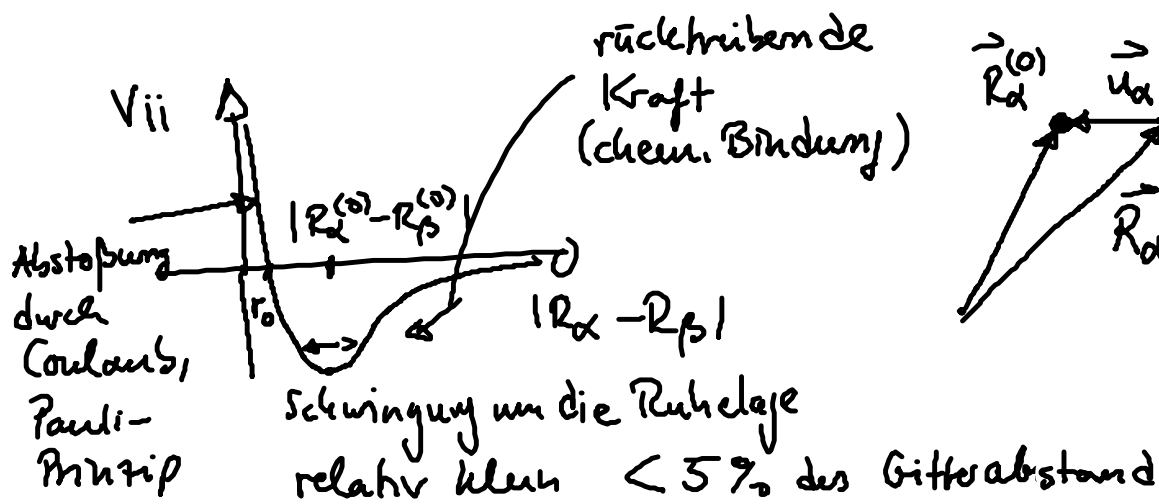 rücktreibende
Kraft
(chem. Bindung)
Vii
|R_α^(0) - R_β^(0)|
Abstoßung
durch
Coulomb,
Pauli-
Prinzip
r_0
|R_α - R_β|
Schwingung um die Ruhelage
relativ klein < 5% des Gitterabstand
R_α^(0)
u_α
R_α